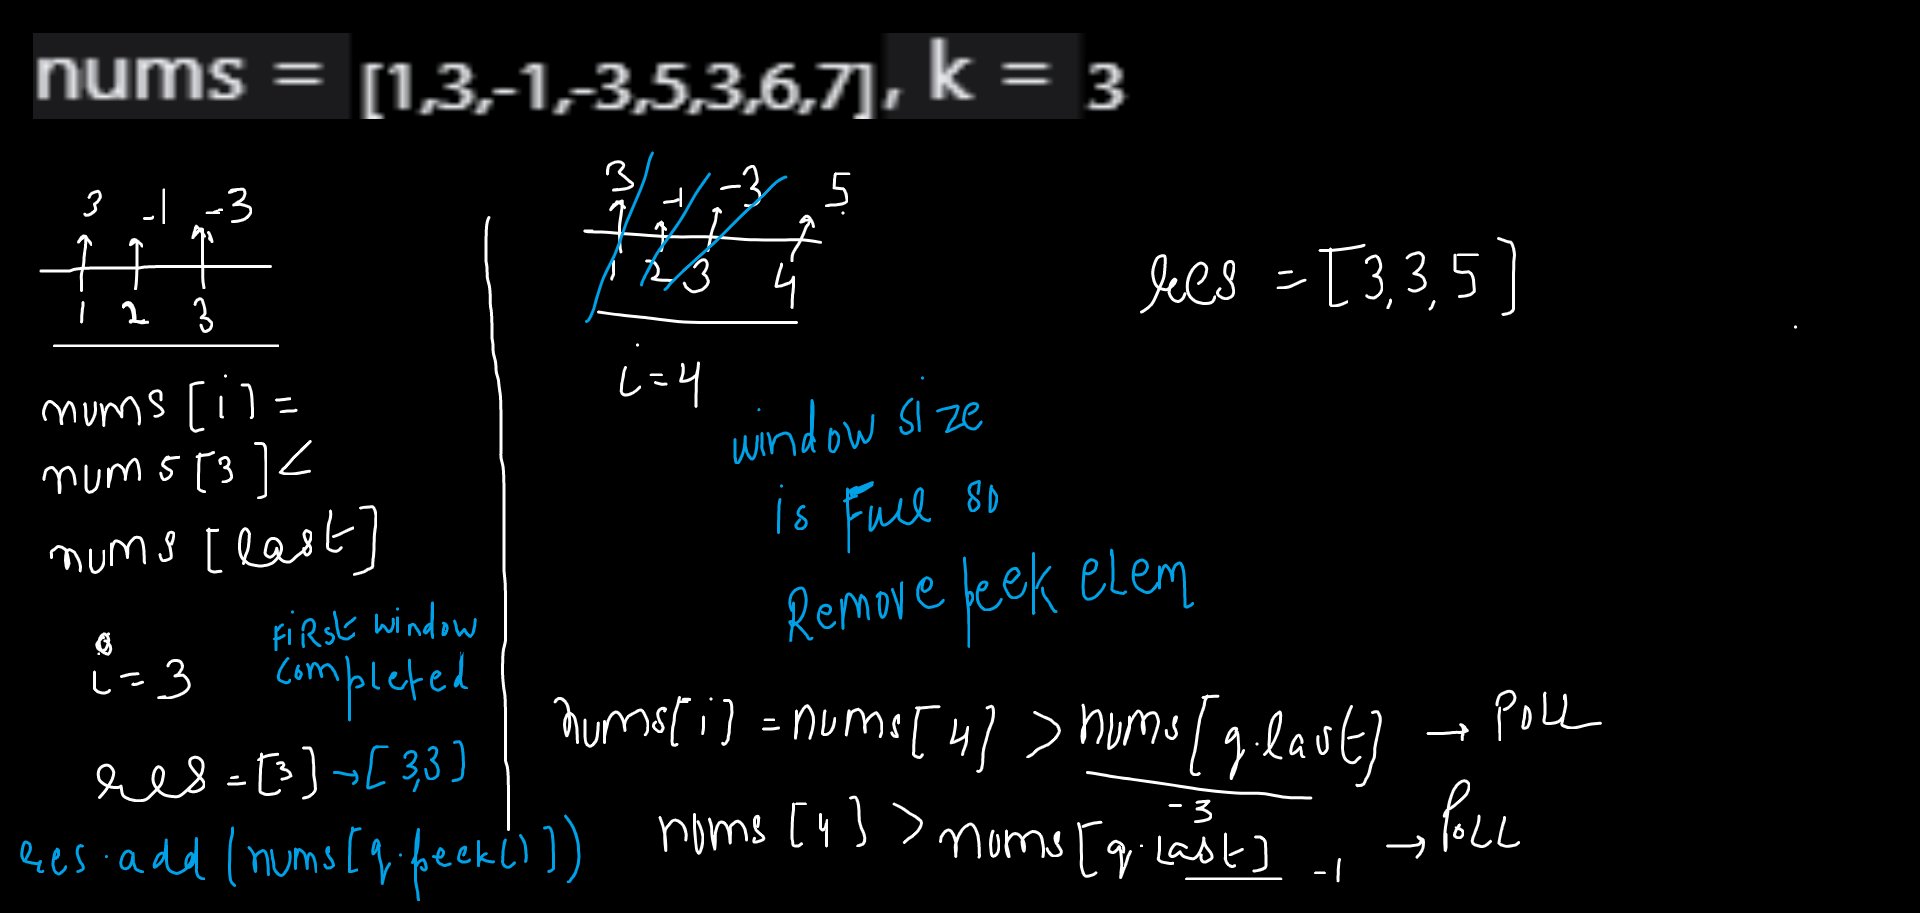 nums = [1,3,-1,-3,5,3,6,7], k = 3
3 -1 -3
1 2 3
nums [i] =
nums [3] <
nums [last]
i = 3
FiRst window
completed
res = [3] → [3,3]
res.add (nums[q.peek()])
3 -1 -3 5
1 2 3 4
i = 4
window size
is Full so
Remove peek elem
nums[i] = nums[4] > nums[q.last] → POLL
-3
nums [4] > nums[q.last] → POLL
-1
res = [3,3,5]